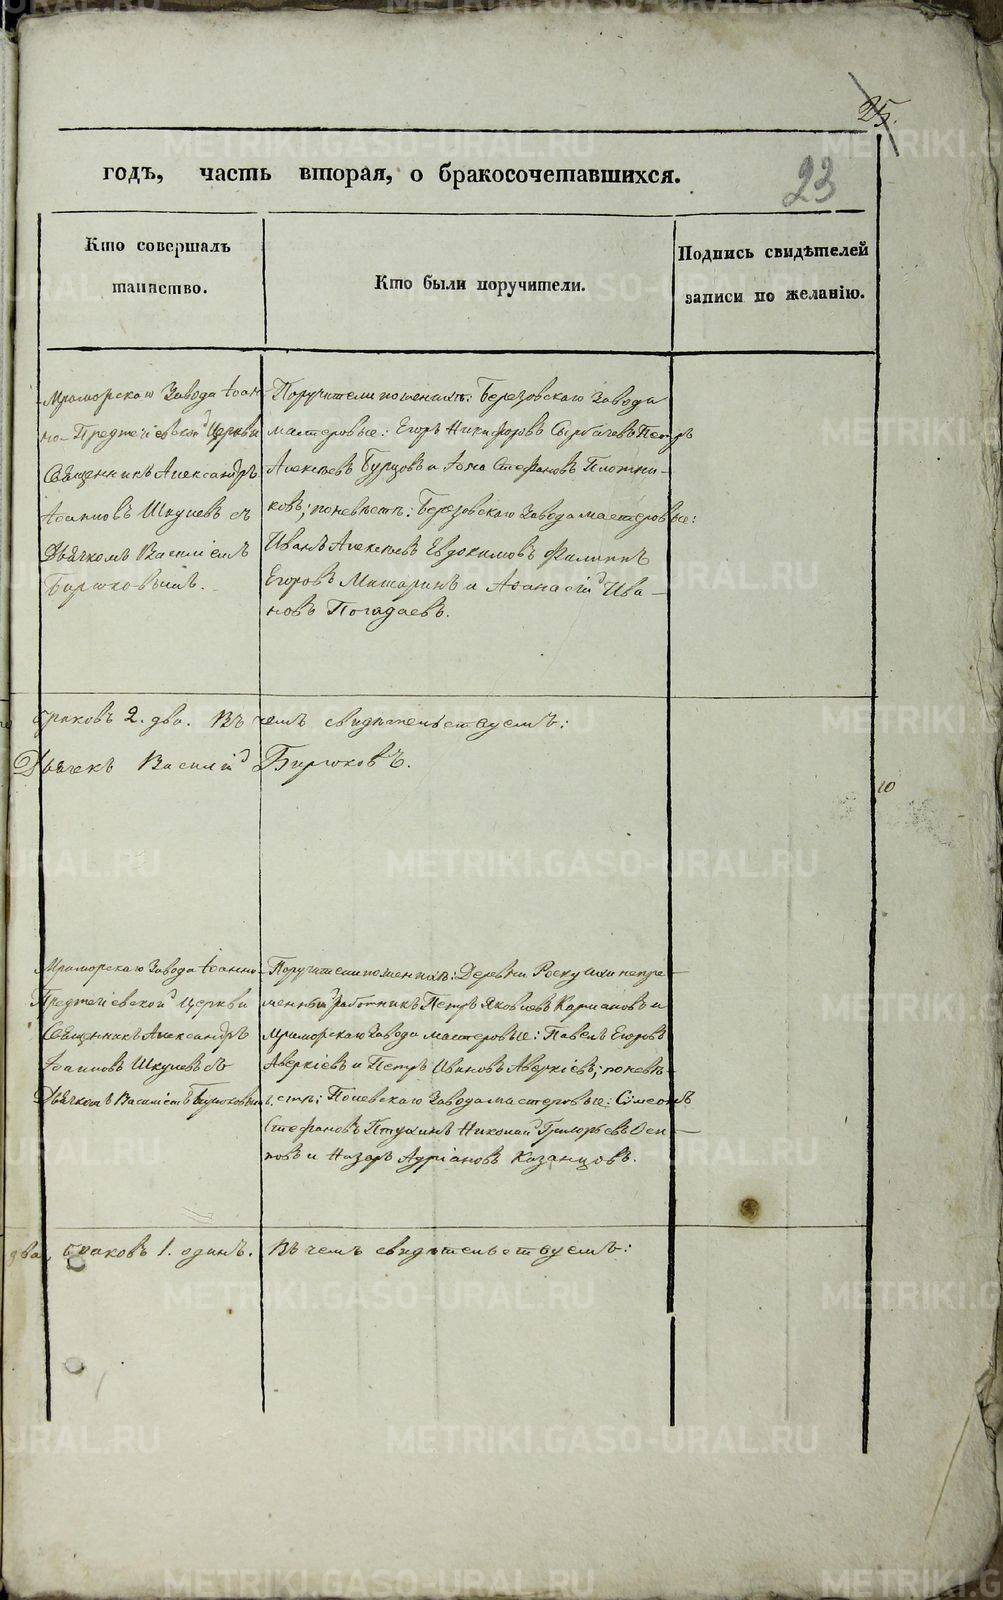 25.
23
годъ, часть вторая, о бракосочетавшихся.
Кто совершалъ
таинство.
Кто были поручители.
Подпись свидѣтелей
записи по желанію.
Мраморскаго Завода Іоан-
но-Предтечіевской Церкви
Священникъ Александръ
Іоанновъ Шкулевъ съ
Дьячкомъ Василіемъ
Бирюковымъ.
Поручители по женихѣ: Березовскаго Завода
мастеровые: Егоръ Никифоровъ Сырбачевъ Петръ
Алексѣевъ Бурцовъ и Ѳома Стефановъ Плотни-
ковъ; по невѣстѣ: Березовскаго Завода мастеровые:
Иванъ Алексѣевъ Евдокимовъ Филиппъ
Егоровъ Машаринъ и Аѳанасій Ива-
новъ Погадаевъ.
браковъ 2. два. Въ чемъ свидѣтельствуемъ:
Дьячекъ Василій Бирюковъ.
10
Мраморскаго Завода Іоанно-
Предтечіевской Церкви
Священникъ Александръ
Іоанновъ Шкулевъ съ
Дьячкомъ Василіемъ Бирюковымъ.
Поручители по женихѣ: Деревни Роскуихи непре-
менный работникъ Петръ Яковлевъ Карпановъ и
Мраморскаго Завода мастеровые: Павелъ Егоровъ
Аверкіевъ и Петръ Ивановъ Аверкіевъ; по невѣ-
стѣ: Полевскаго Завода мастеровые: Симеонъ
Стефановъ Птухинъ Николай Григорьевъ Оси-
повъ и Назаръ Адріановъ Казанцовъ.
два, браковъ 1. одинъ. Въ чемъ свидѣтельствуемъ:
METRIKI.GASO-URAL.RU